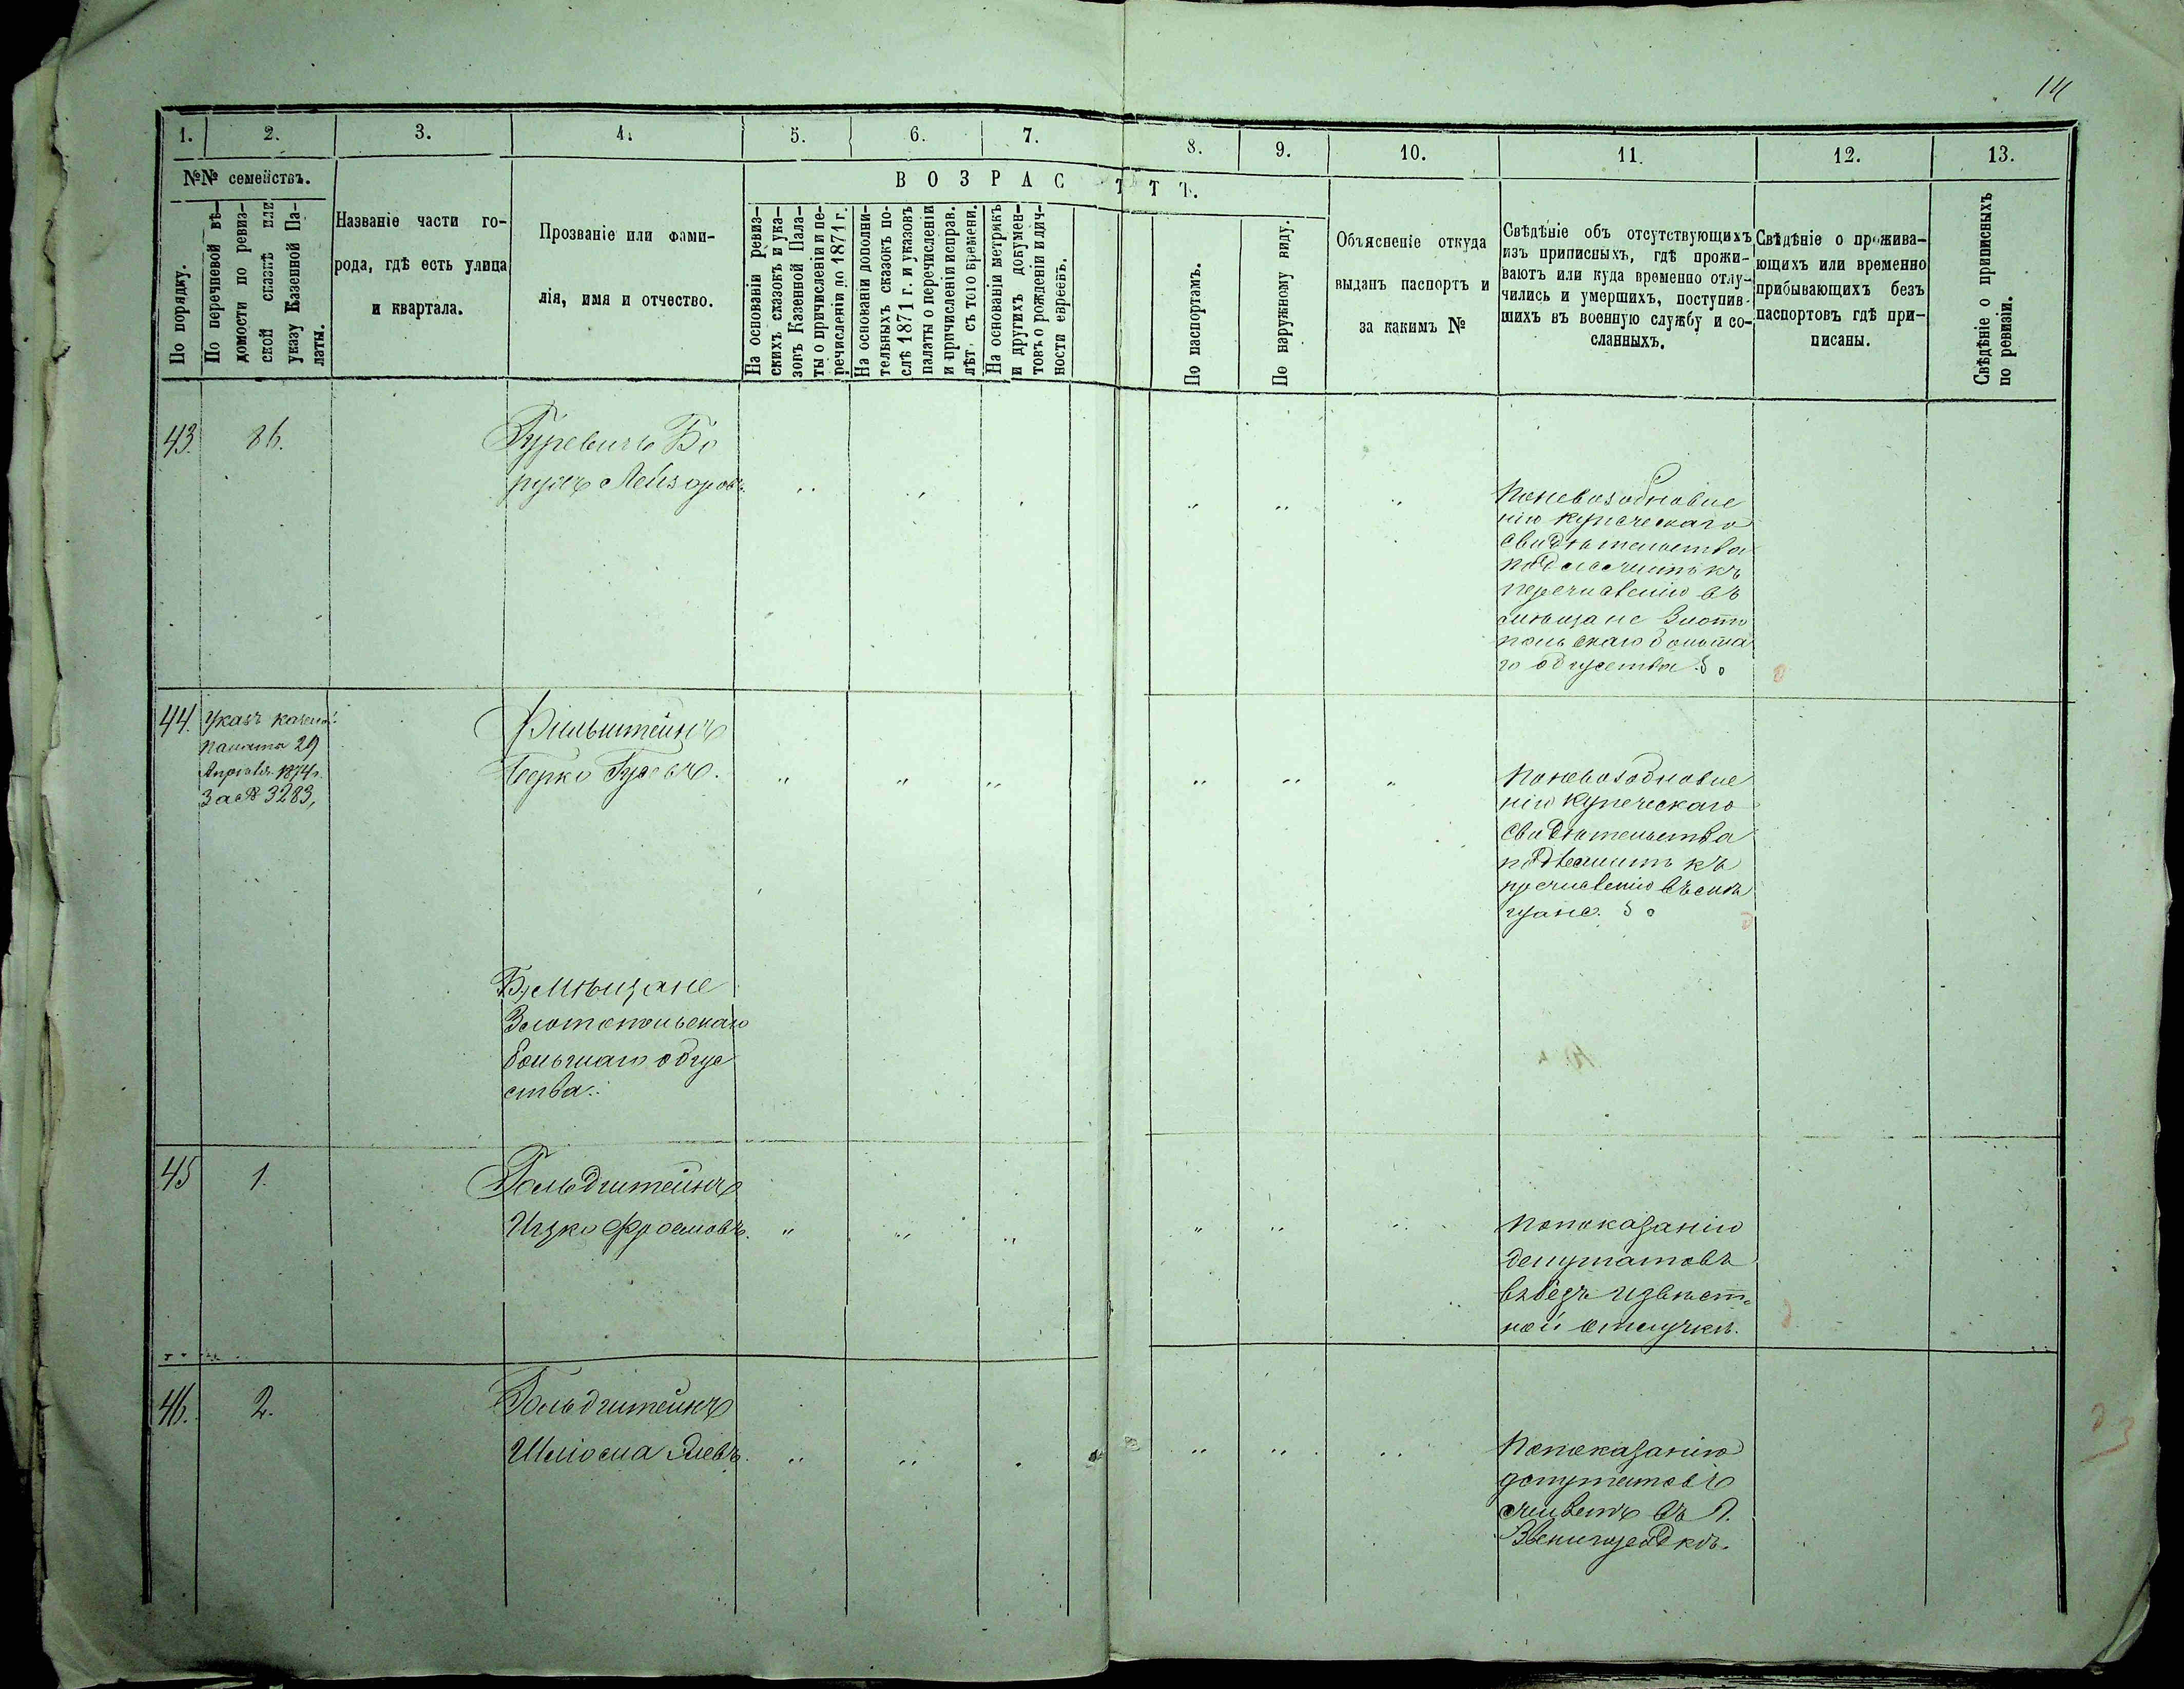 14
1. 2. 3. 4. 5. 6. 7. 8. 9. 10. 11. 12. 13.
№№ семействъ.
По порядку.
По перечневой вѣ-
домости по ревиз-
ской сказкѣ или
указу Казенной Па-
латы.
Названіе части го-
рода, гдѣ есть улица
и квартала.
Прозваніе или фами-
лія, имя и отчество.
ВОЗРАС ТТТ.
На основаніи ревиз-
скихъ сказокъ и ука-
зовъ Казенной Пала-
ты о причисленіи и пе-
речисленіи до 1871 г.
На основаніи дополни-
тельныхъ сказокъ по-
слѣ 1871 г. и указовъ
палаты о перечисленіи
и причисленіи исправ.
лѣт. съ того времени.
На основаніи метрикъ
и другихъ докумен-
товъ о рожденіи и лич-
ности евреевъ.
По паспортамъ.
По наружному виду.
Объясненіе откуда
выданъ паспортъ и
за какимъ №
Свѣдѣніе объ отсутствующихъ
изъ приписныхъ, гдѣ прожи-
ваютъ или куда временно отлу-
чились и умершихъ, поступив-
шихъ въ военную службу и со-
сланныхъ.
Свѣдѣніе о прожива-
ющихъ или временно
прибывающихъ безъ
паспортовъ гдѣ при-
писаны.
Свѣдѣніе о приписныхъ
по ревизіи.
43. 86.
Гуревичъ Бо
рухъ Лейзоровъ.
Поневозобновле
нію купеческаго
свидѣтельства
подлежитъ къ
перечисленію въ
мѣщане Злото
польскаго большa
го общества
44. Указъ казеной
палаты 29
Апрѣля 1874 г.
За № 3283,
Фильштейнъ
Берко
Поневозобновле
нію купеческаго
свидѣтельства
подлежитъ къ
пречисленію въ мѣ
щане.
Б, Мѣщане
Золотопольскаго
большаго обще
ства:
45 1.
Гольдштейнъ
Ицко Фроимовъ.
Попоказанію
депутатовъ
въ безъ извѣст-
ной отлучкѣ.
46. 2.
Гольдштейнъ
Шліома
Попоказанію
депутатовъ
живетъ въ г.
Звенигородкѣ.